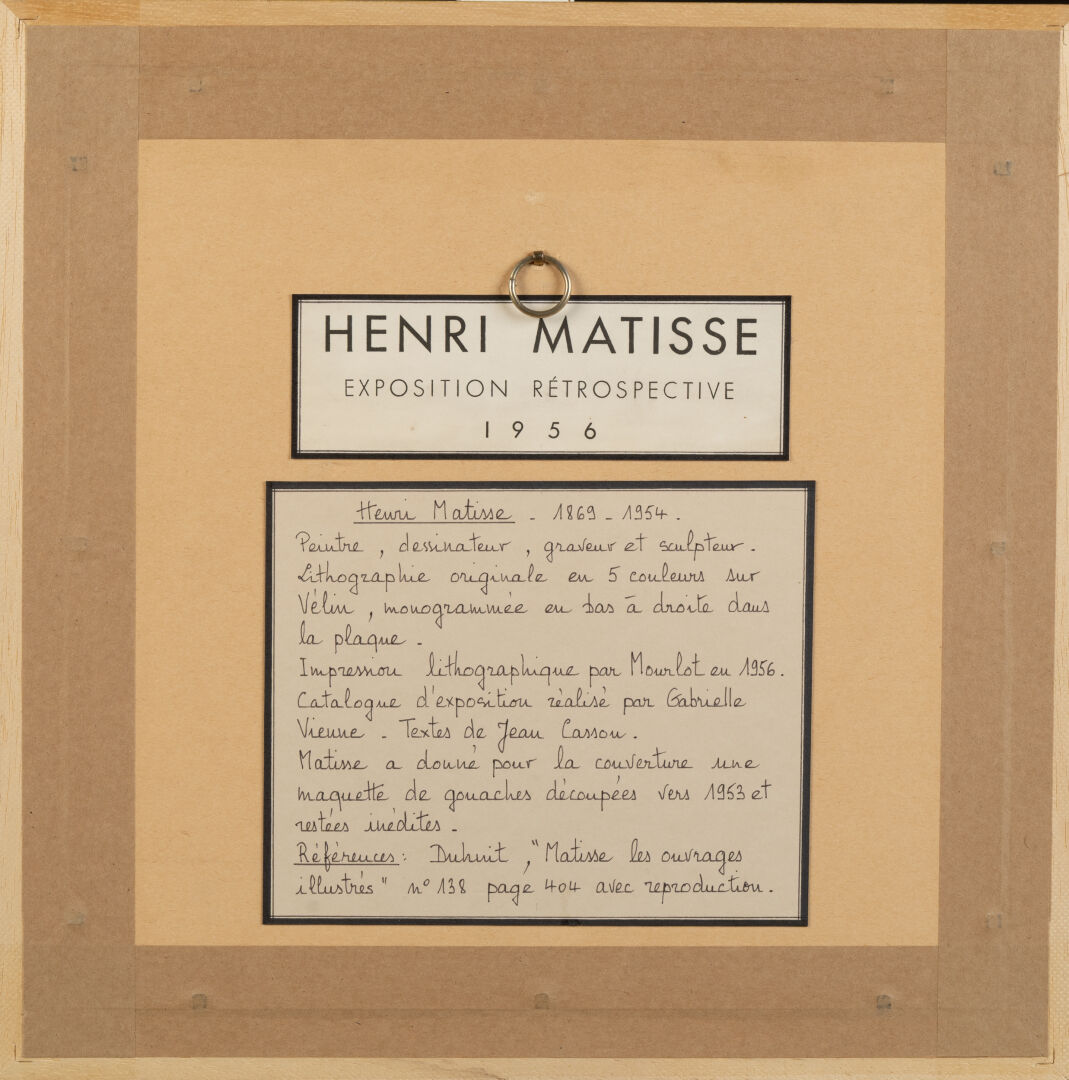 HENRI MATISSE
EXPOSITION RÉTROSPECTIVE
1956
Henri Matisse - 1869 - 1954.
Peintre, dessinateur, graveur et sculpteur.
Lithographie originale en 5 couleurs sur
Vélin, monogrammée en bas à droite dans
la plaque.
Impression lithographique par Mourlot en 1956.
Catalogue d'exposition réalisé par Gabrielle
Vienne - Textes de Jean Cassou.
Matisse a donné pour la couverture une
maquette de gouaches découpées vers 1953 et
restées inédites.
Références: Duhuit, "Matisse les ouvrages
illustrés" n° 138 page 404 avec reproduction.